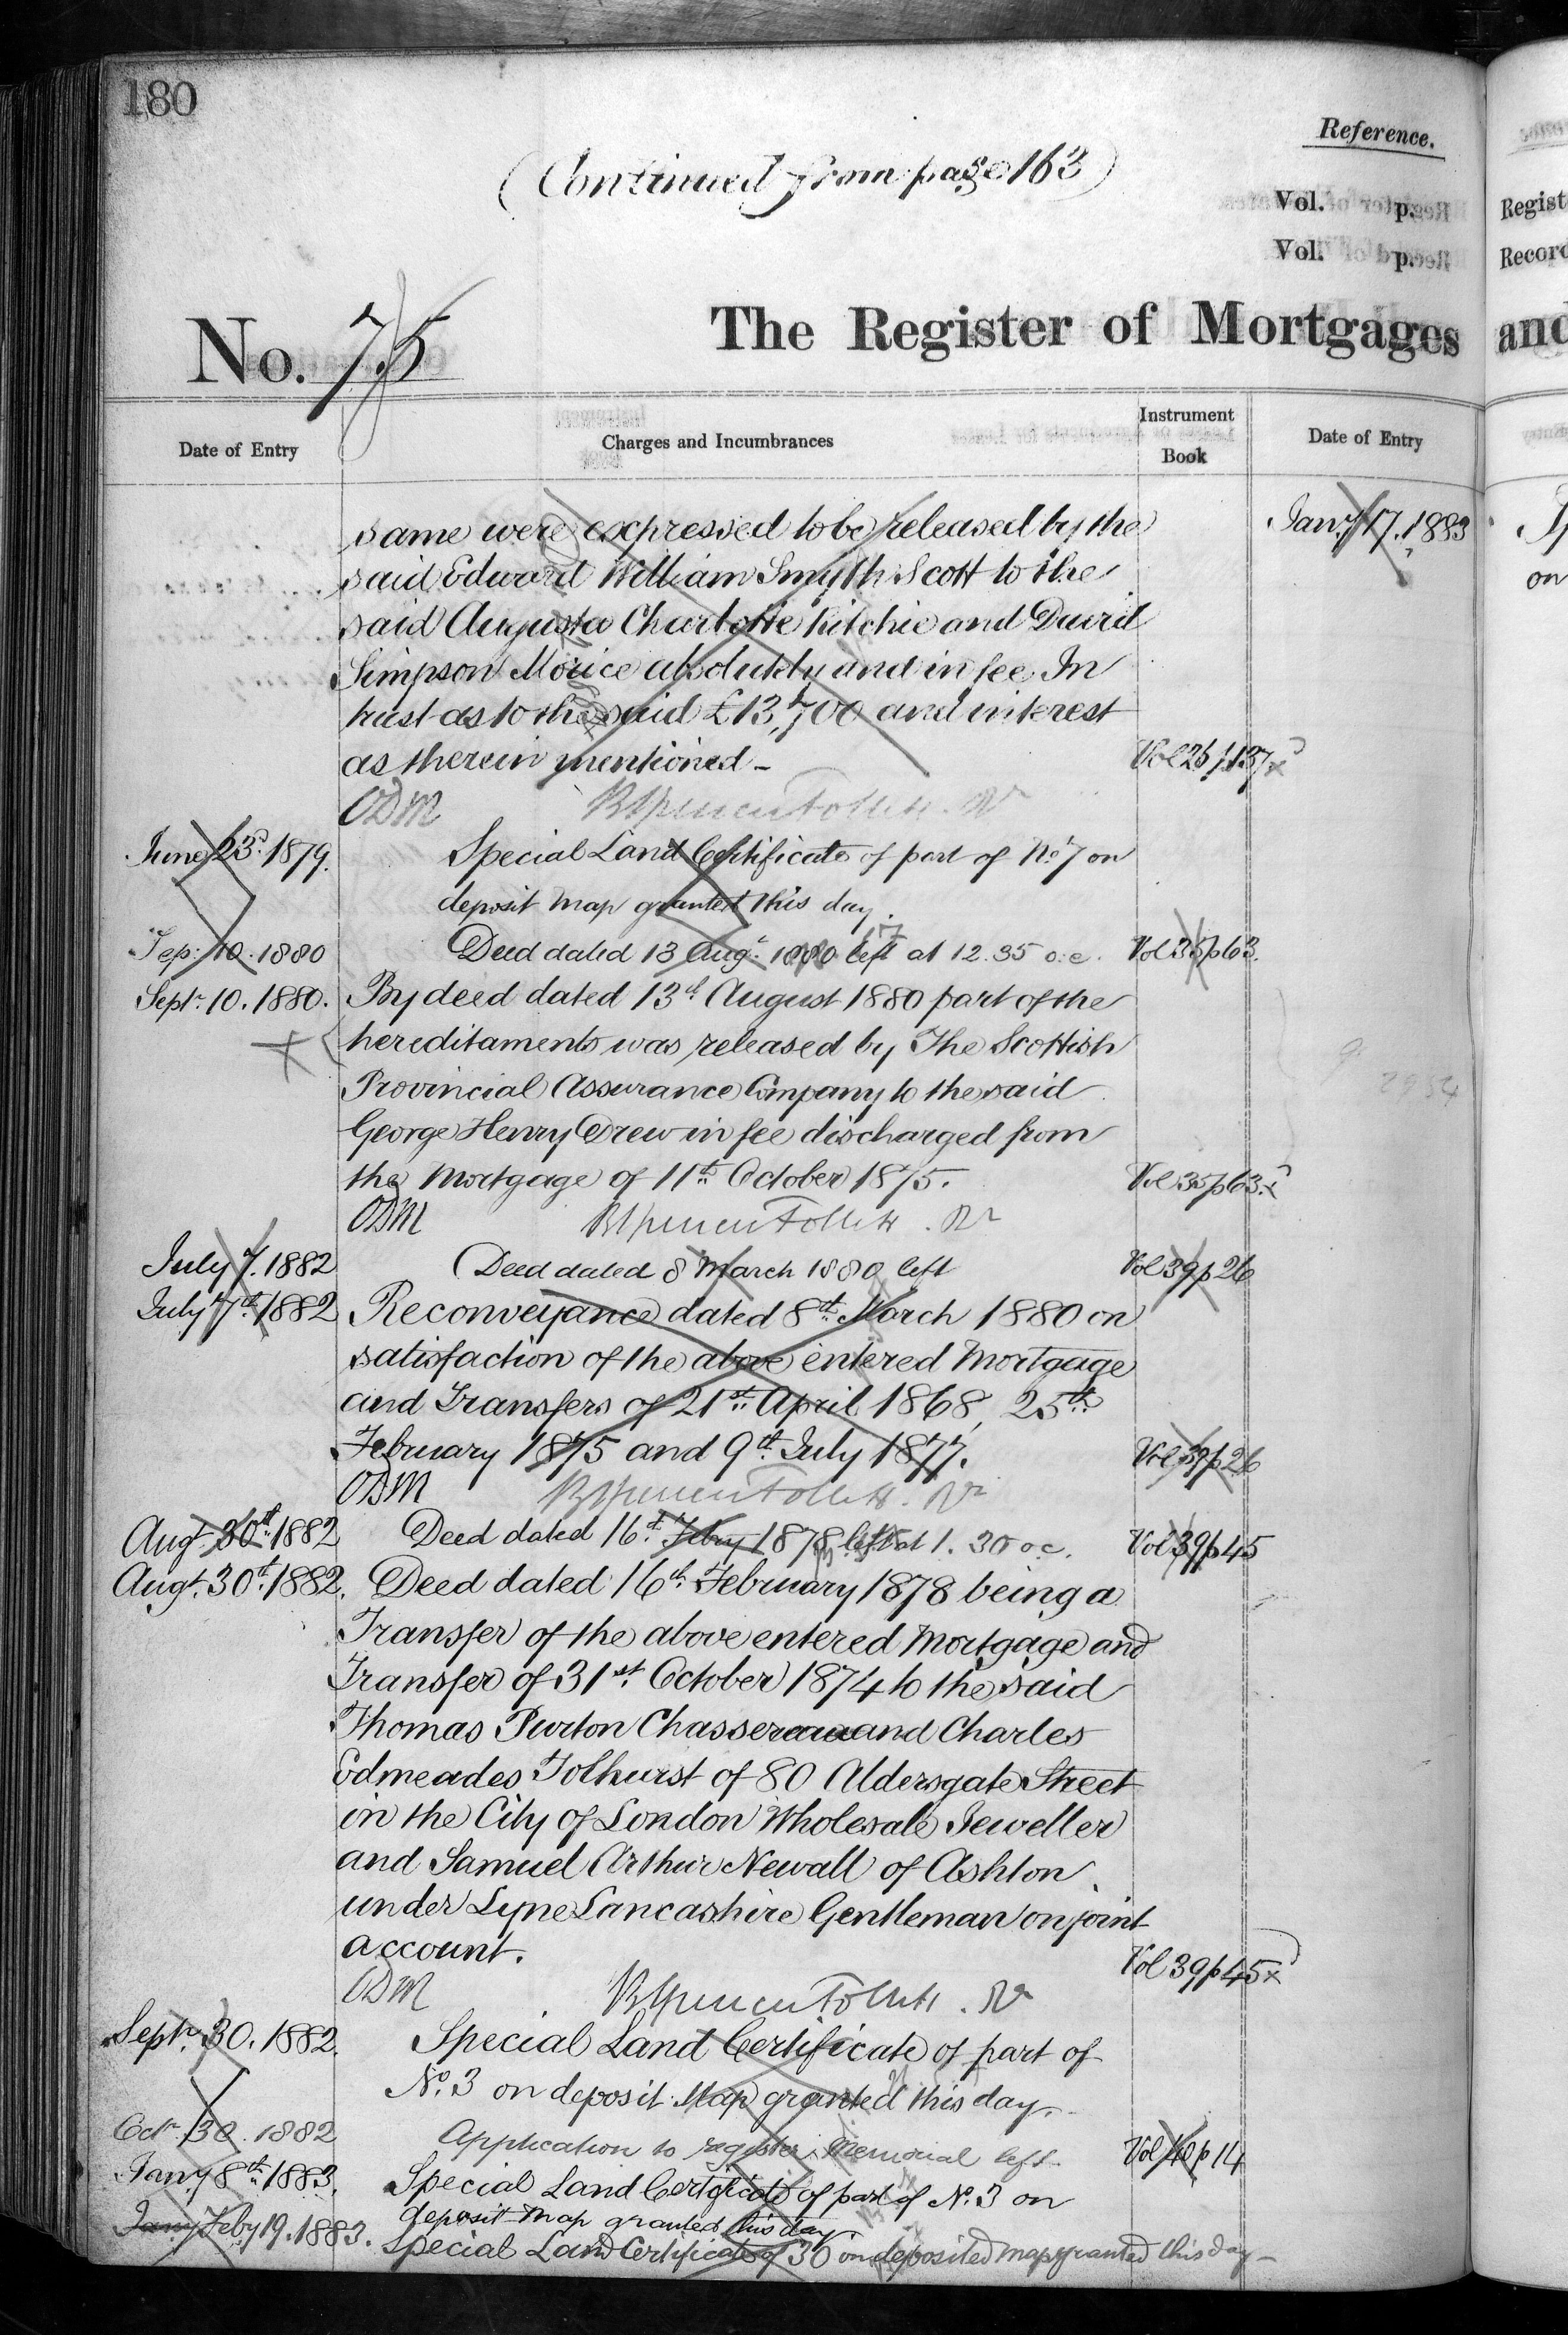 180
Reference.
(Continued from page 163)
Vol. p.
Vol. p.
Regist
Record
No. 75
The Register of Mortgages and
Date of Entry
Charges and Incumbrances
Instrument Book
Date of Entry
same were expressed to be released by the
Jany. 17. 1883
said Edward William Smyth Scott to the
on
said Augusta Charlotte Ritchie and David
Simpson Morice absolutely and in fee In
trust as to the said £13,700 and interest
as therein mentioned - Vol 25 p 137 x
ODM
June 23rd. 1879. Special Land Certificate of part of No. 7 on
deposit Map granted this day.
Sep: 10. 1880 Deed dated 13 Augt. 1880 left at 12.35 o.c. Vol 35 p 63.
Septr. 10. 1880. By deed dated 13th August 1880 part of the
hereditaments was released by The Scottish
Provincial Assurance Company to the said
2954
George Henry Drew in fee discharged from
the Mortgage of 11th. October 1875. Vol 35 p 63. x
ODM
July 7. 1882 Deed dated 8 March 1880 left Vol 39 p 26
July 7th. 1882 Reconveyance dated 8th. March 1880 on
satisfaction of the above entered Mortgage
and Transfers of 21st. April 1868, 25th.
February 1875 and 9th. July 1877. Vol 39 p 26
ODM
Aug. 30th. 1882 Deed dated 16th. Feby 1878 left at 1. 30 oc. Vol 39 p 45
Augt. 30th. 1882. Deed dated 16th. February 1878 being a
Transfer of the above entered Mortgage and
Transfer of 31st. October 1874 to the said
Thomas Purton Chassereau and Charles
Edmeades Tolhurst of 80 Aldersgate Street
in the City of London Wholesale Jeweller
and Samuel Arthur Newall of Ashton
under Lyne Lancashire Gentleman on joint
account. Vol 39 p 45 x
ODM
Septr. 30. 1882. Special Land Certificate of part of
No. 3 on deposit Map granted this day.
Octr. 30. 1882 Application to register Memorial left. Vol 40 p 14
Jany 8th. 1883. Special Land Certificate of part of No. 3 on
deposit Map granted this day
Jany Feby 19. 1883. Special Land Certificate of 30 on deposited map granted this day -